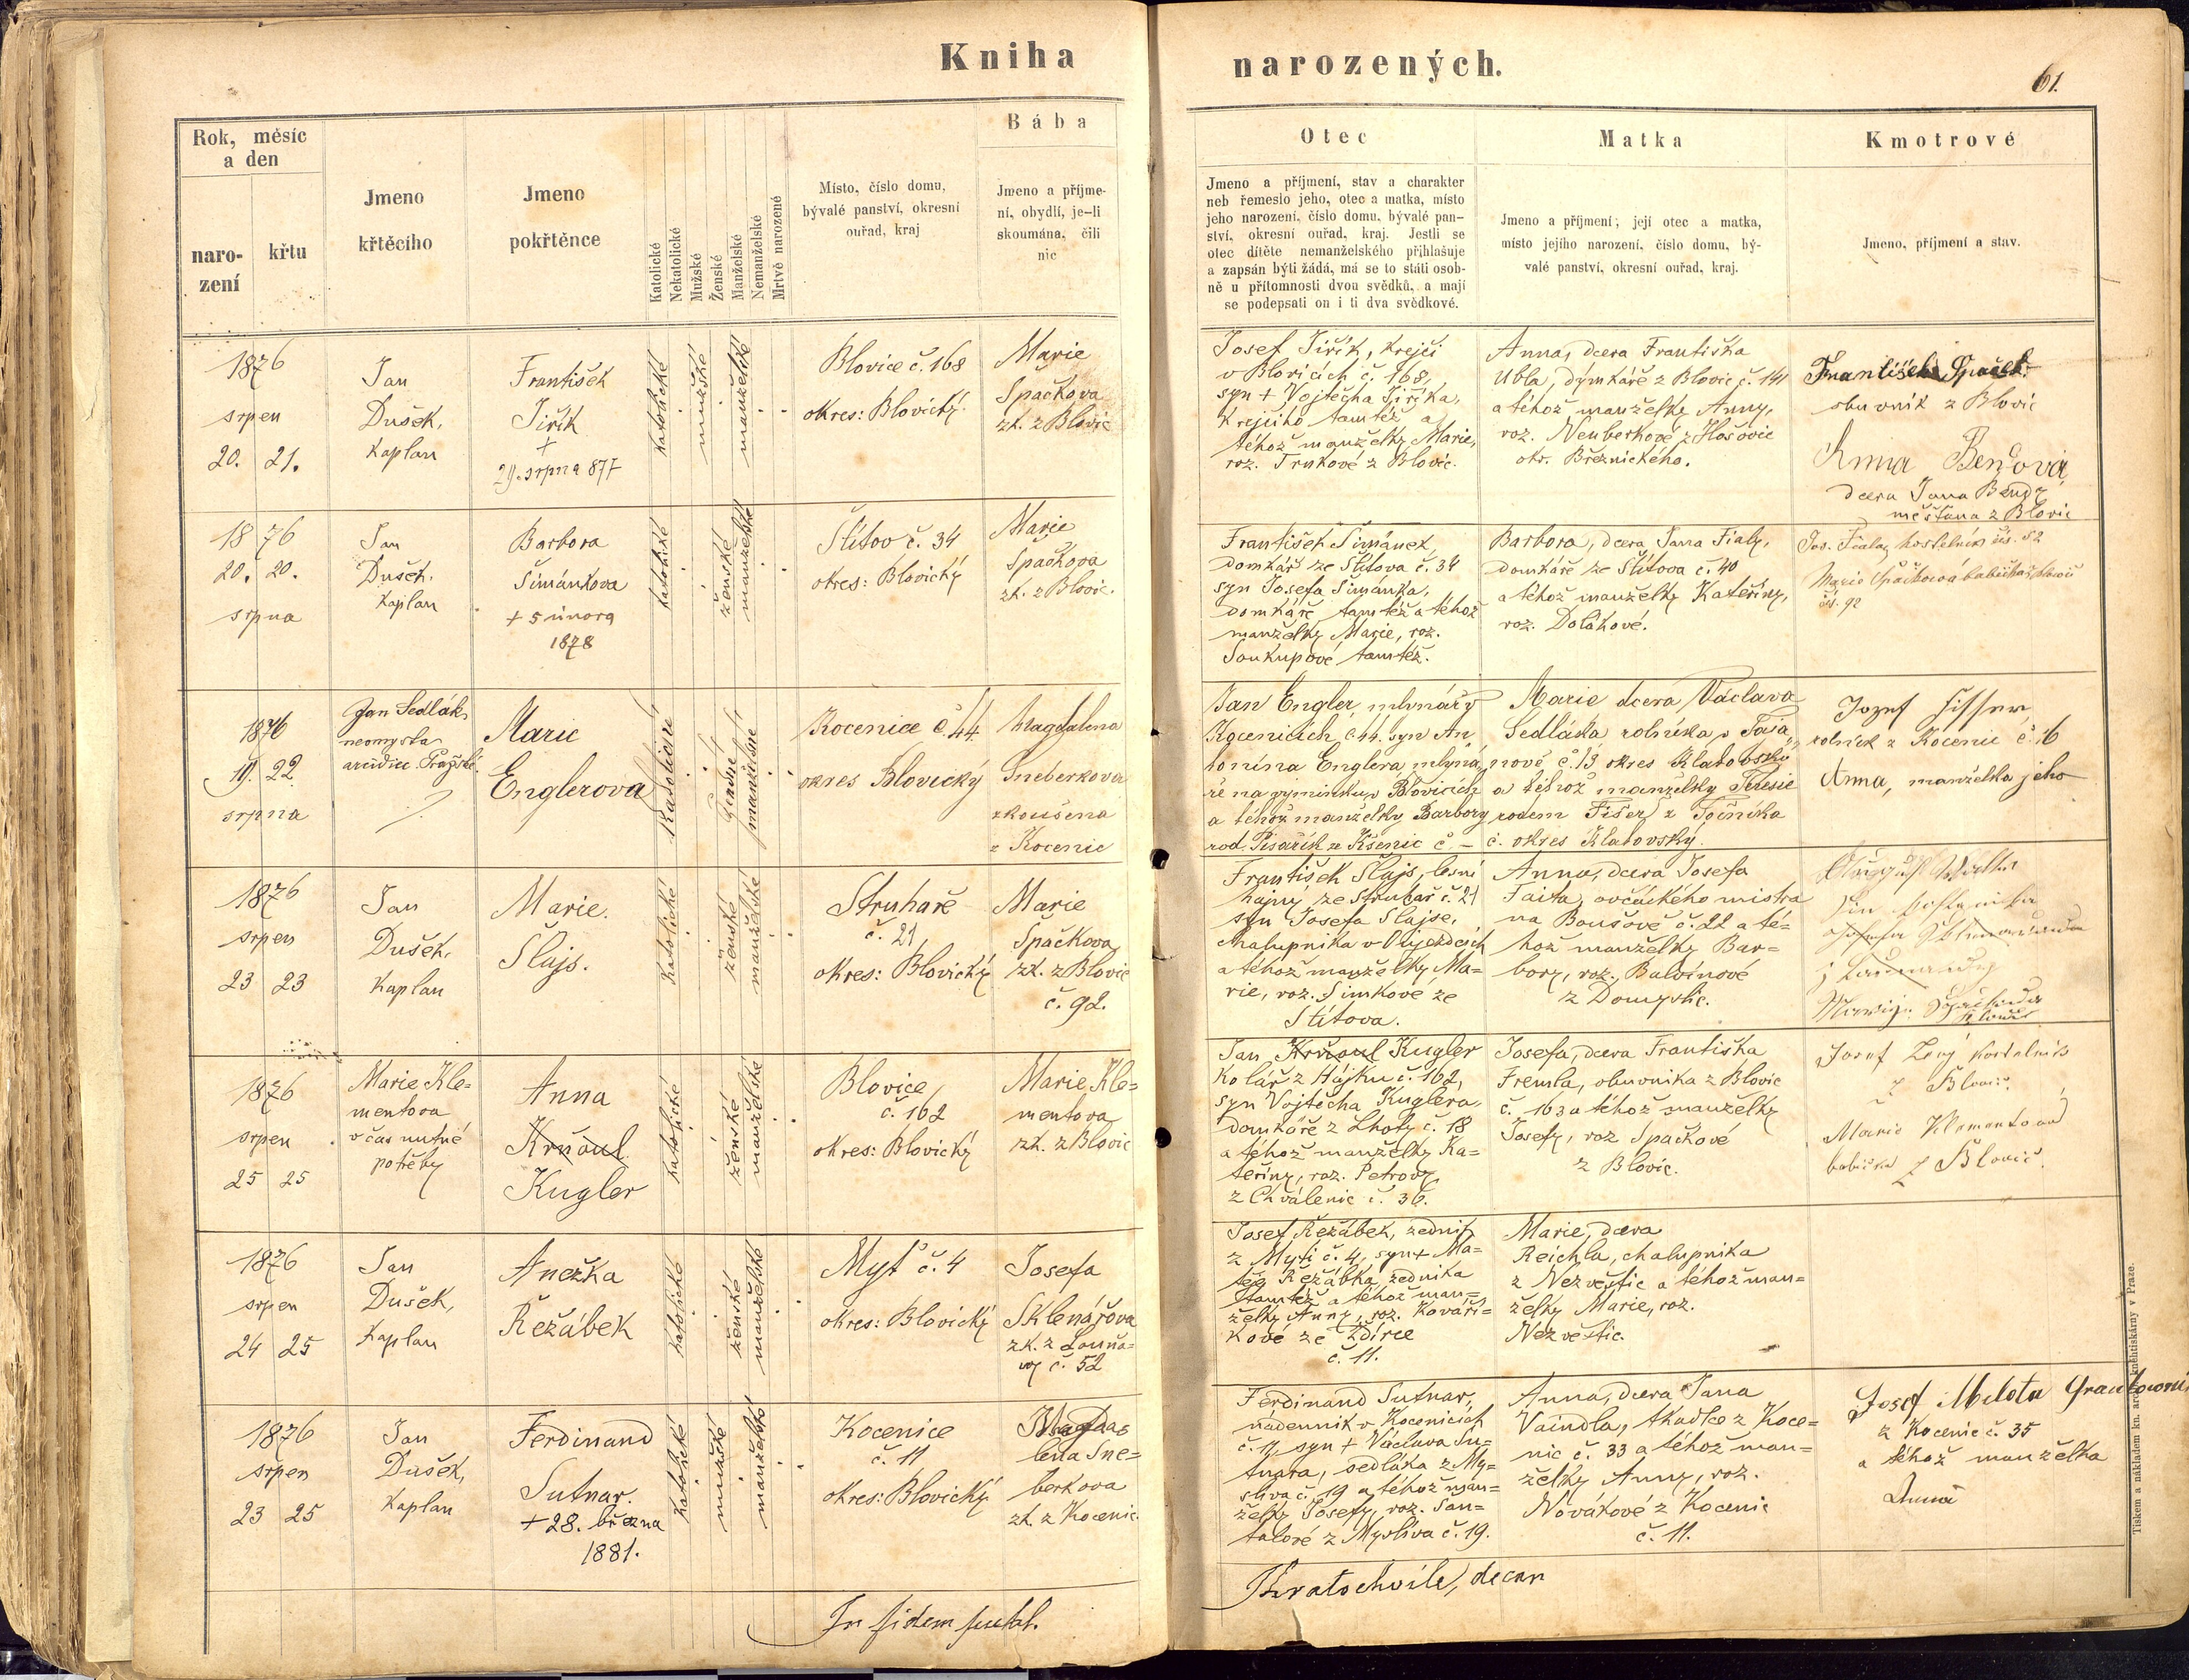 Kniha
narozených.
61.
Rok, měsíc
a den
naro-
zení
křtu
Jmeno
křtěcího
Jmeno
pokřtěnce
Katolické
Nekatolické
Mužské
Ženské
Manželské
Nemanželské
Mrtvě narozené
Místo, číslo domu,
bývalé panství, okresní
ouřad, kraj
Bába
Jmeno a příjme-
ní, obydlí, je-li
skoumána, čili
nic
Otec
Jmeno a příjmení, stav a charakter
neb řemeslo jeho, otec a matka, místo
jeho narození, číslo domu, bývalé pan-
ství, okresní ouřad, kraj. Jestli se
otec dítěte nemanželského přihlašuje
a zapsán býti žádá, má se to státi osob-
ně u přítomnosti dvou svědků, a mají
se podepsati on i ti dva svědkové.
Matka
Jmeno a příjmení, její otec a matka,
místo jejího narození, číslo domu, bý-
valé panství, okresní ouřad, kraj.
Kmotrové
Jmeno, příjmení a stav.
1876
srpen
20. 21.
Jan
Dušek,
kaplan
František
Jiřík
+
29. srpna 877
katolické
mužské
manželské
Blovice č. 168
okres: Blovický
Marie
Spačkova
zk. z Blovic
Josef Jiřík, krejčí
v Blovicích č. 168,
syn + Vojtěcha Jiříka,
krejčího tamtéž a
téhož manželky Marie,
roz. Trnkové z Blovic.
Anna, dcera Františka
Ubla, dýmkáře z Blovic č. 141
a téhož manželky Anny,
roz. Neuberkové z Hošovic
okr. Březnického.
František Spaček
obuvník z Blovic
Anna Bendová
dcera Jana Bendy
měšťana z Blovic
1876
20. 20.
srpna
Jan
Dušek,
kaplan
Barbora
Šimánkova
+ 5 února
1878
katolické
ženské
manželské
Štítov č. 34
okres: Blovický
Marie
Spačkova
zk. z Blovic.
František Šimánek,
domkář ze Štítova č. 34
syn Josefa Šimánka,
domkáře tamtéž a téhož
manželky Marie, roz.
Soukupové tamtéž.
Barbora, dcera Jana Fialy,
domkáře ze Štítova č. 40
a téhož manželky Kateřiny,
roz. Dolákové.
Jos. Fiala, kostelník čís. 52
Marie Spačková babička z Blowic
čís. 92
1876
19. 22.
srpna
Jan Sedlák,
neomysta
arcidiec. Pražské.
Marie
Englerova
Katolické
ženské
manželské
Kocenice č 44.
okres Blovický
Magdalena
Sneberkova
zkoušena
z Kocenic
Jan Engler mlynář v
Kocenicích č. 44. syn An
tonína Englera mlyná
ře na výminku v Blovicích
a téhož manželky Barbory
rod. Pisařík ze Kšenic č. –
Marie dcera Václava
Sedláka rolníka v
nově č. 13 okres Klatovský
a téhož manželky Teresie
rodem Fišer z Točníka
č. okres Klatovský.
Jozef
rolník z Kocenic č. 16
Anna, manželka jeho
1876
srpen
23 23
Jan
Dušek,
kaplan
Marie.
Šlajs.
katolické
ženské
manželské
Struhaře
č. 21,
okres: Blovický
Marie
Spačkova
zk. z Blovic
č. 92.
František Šlajs, lesní
hajný ze Struhař č. 21
syn Josefa Slajse,
chalupníka v Oujezdcích
a téhož manželky Ma=
rie, roz. Šimkové ze
Štítova.
Anna, dcera Josefa
Taita, ovčáckého mistra
na Boušově č. 22 a té=
hož manželky Bar=
bory, roz. Balvínové
z Domyslic.
1876
srpen
25 25
Marie Kle=
mentova
v čas nutné
potřeby
Anna
Krňoul
Kugler
katolické
ženské
manželské
Blovice
č. 162
okres: Blovický
Marie Kle=
mentova
zk. z Blovic
Jan Krňoul Kugler
kolář z Hájku č. 162,
syn Vojtěcha Kuglera,
domkáře z Lhoty č. 18
a téhož manželky Ka=
teřiny, roz. Petrovy
z Chválenic č. 36.
Josefa, dcera Františka
Fremla, obuvníka z Blovic
č. 163 a téhož manželky
Josefy, roz Spačkové
z Blovic.
Josef kostelník
z Blovic.
Marie Klementová
babička z Blovic.
1876
srpen
24 25
Jan
Dušek,
kaplan
Anežka
Řežábek
katolické
ženské
manželské
Myť č. 4
okres: Blovický
Josefa
Sklenářova
zk. z Louňo=
vy č. 52
Josef Řežábek, zedník
z Myti č. 4, syn + Ma=
těje Řežábka, zedníka
tamtéž a téhož man=
želky Anny, roz. Kovaří=
kové ze Ždírce
č. 11.
Marie, dcera
Reichla, chalupníka
z Nezvěstic a téhož man=
želky Marie, roz.
Nezvěstic.
1876
srpen
23 25
Jan
Dušek,
kaplan
Ferdinand
Sutnar.
+ 28. března
1881.
katolické
mužské
manželské
Kocenice
č. 11
okres: Blovický
Magda=
lena Sne=
berkova
zk. z Kocenic.
Ferdinand Sutnar,
nadenník v Kocenicích
č. 11, syn + Václava Su=
tnara, sedláka z My=
slíva č. 19 a téhož man=
želky Josefy, roz. Šan=
talové z Myslíva č. 19.
Anna, dcera Jana
Vaindla, tkadlce z Koce=
nic č. 33 a téhož man=
želky Anny, roz.
Novákové z Kocenic
č. 11.
Josef Milota
z Kocenic č. 35
a téhož manželka
Anna
In fidem publ.
Kratochvíle, decan
Tiskem a nákladem kn. arc. kněhtiskárny v Praze.